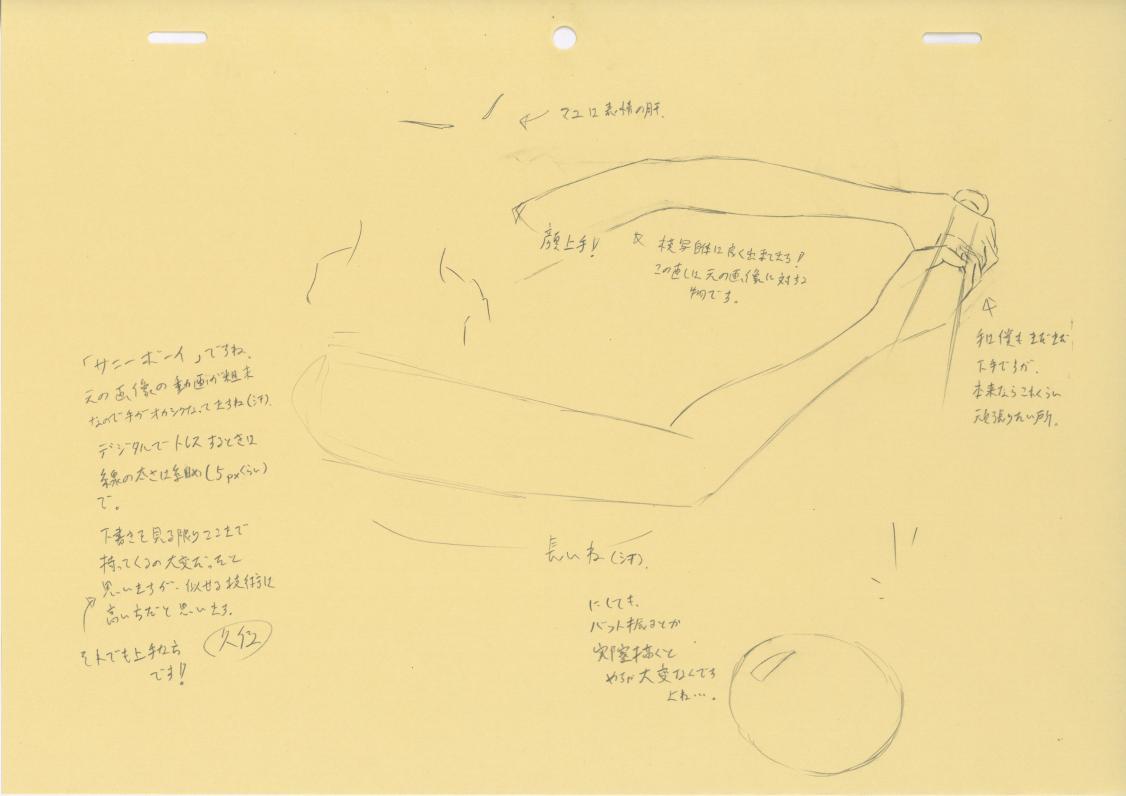 マユは表情の肝。
顔上手!
模写自体は良く出来てます!
この直しは元の画像に対する
物です。
手は僕もまだまだ
下手ですが、
本来ならこれくらい
頑張りたい所。
「サニーボーイ」ですね、
元の画像の動画が粗末
なので手がオカシクなってますね(汗)
デジタルでトレスするときは
線の太さは細め(5pxくらい)
で。
下書きを見る限りここまで
持ってくるの大変だったと
思いますが、似せる技術は
高い方だと思います。
それでも上手な方
です!
長いね(汗)。
にしても、
バット振るとか
実際描くと
めちゃ大変なんです
よね…。